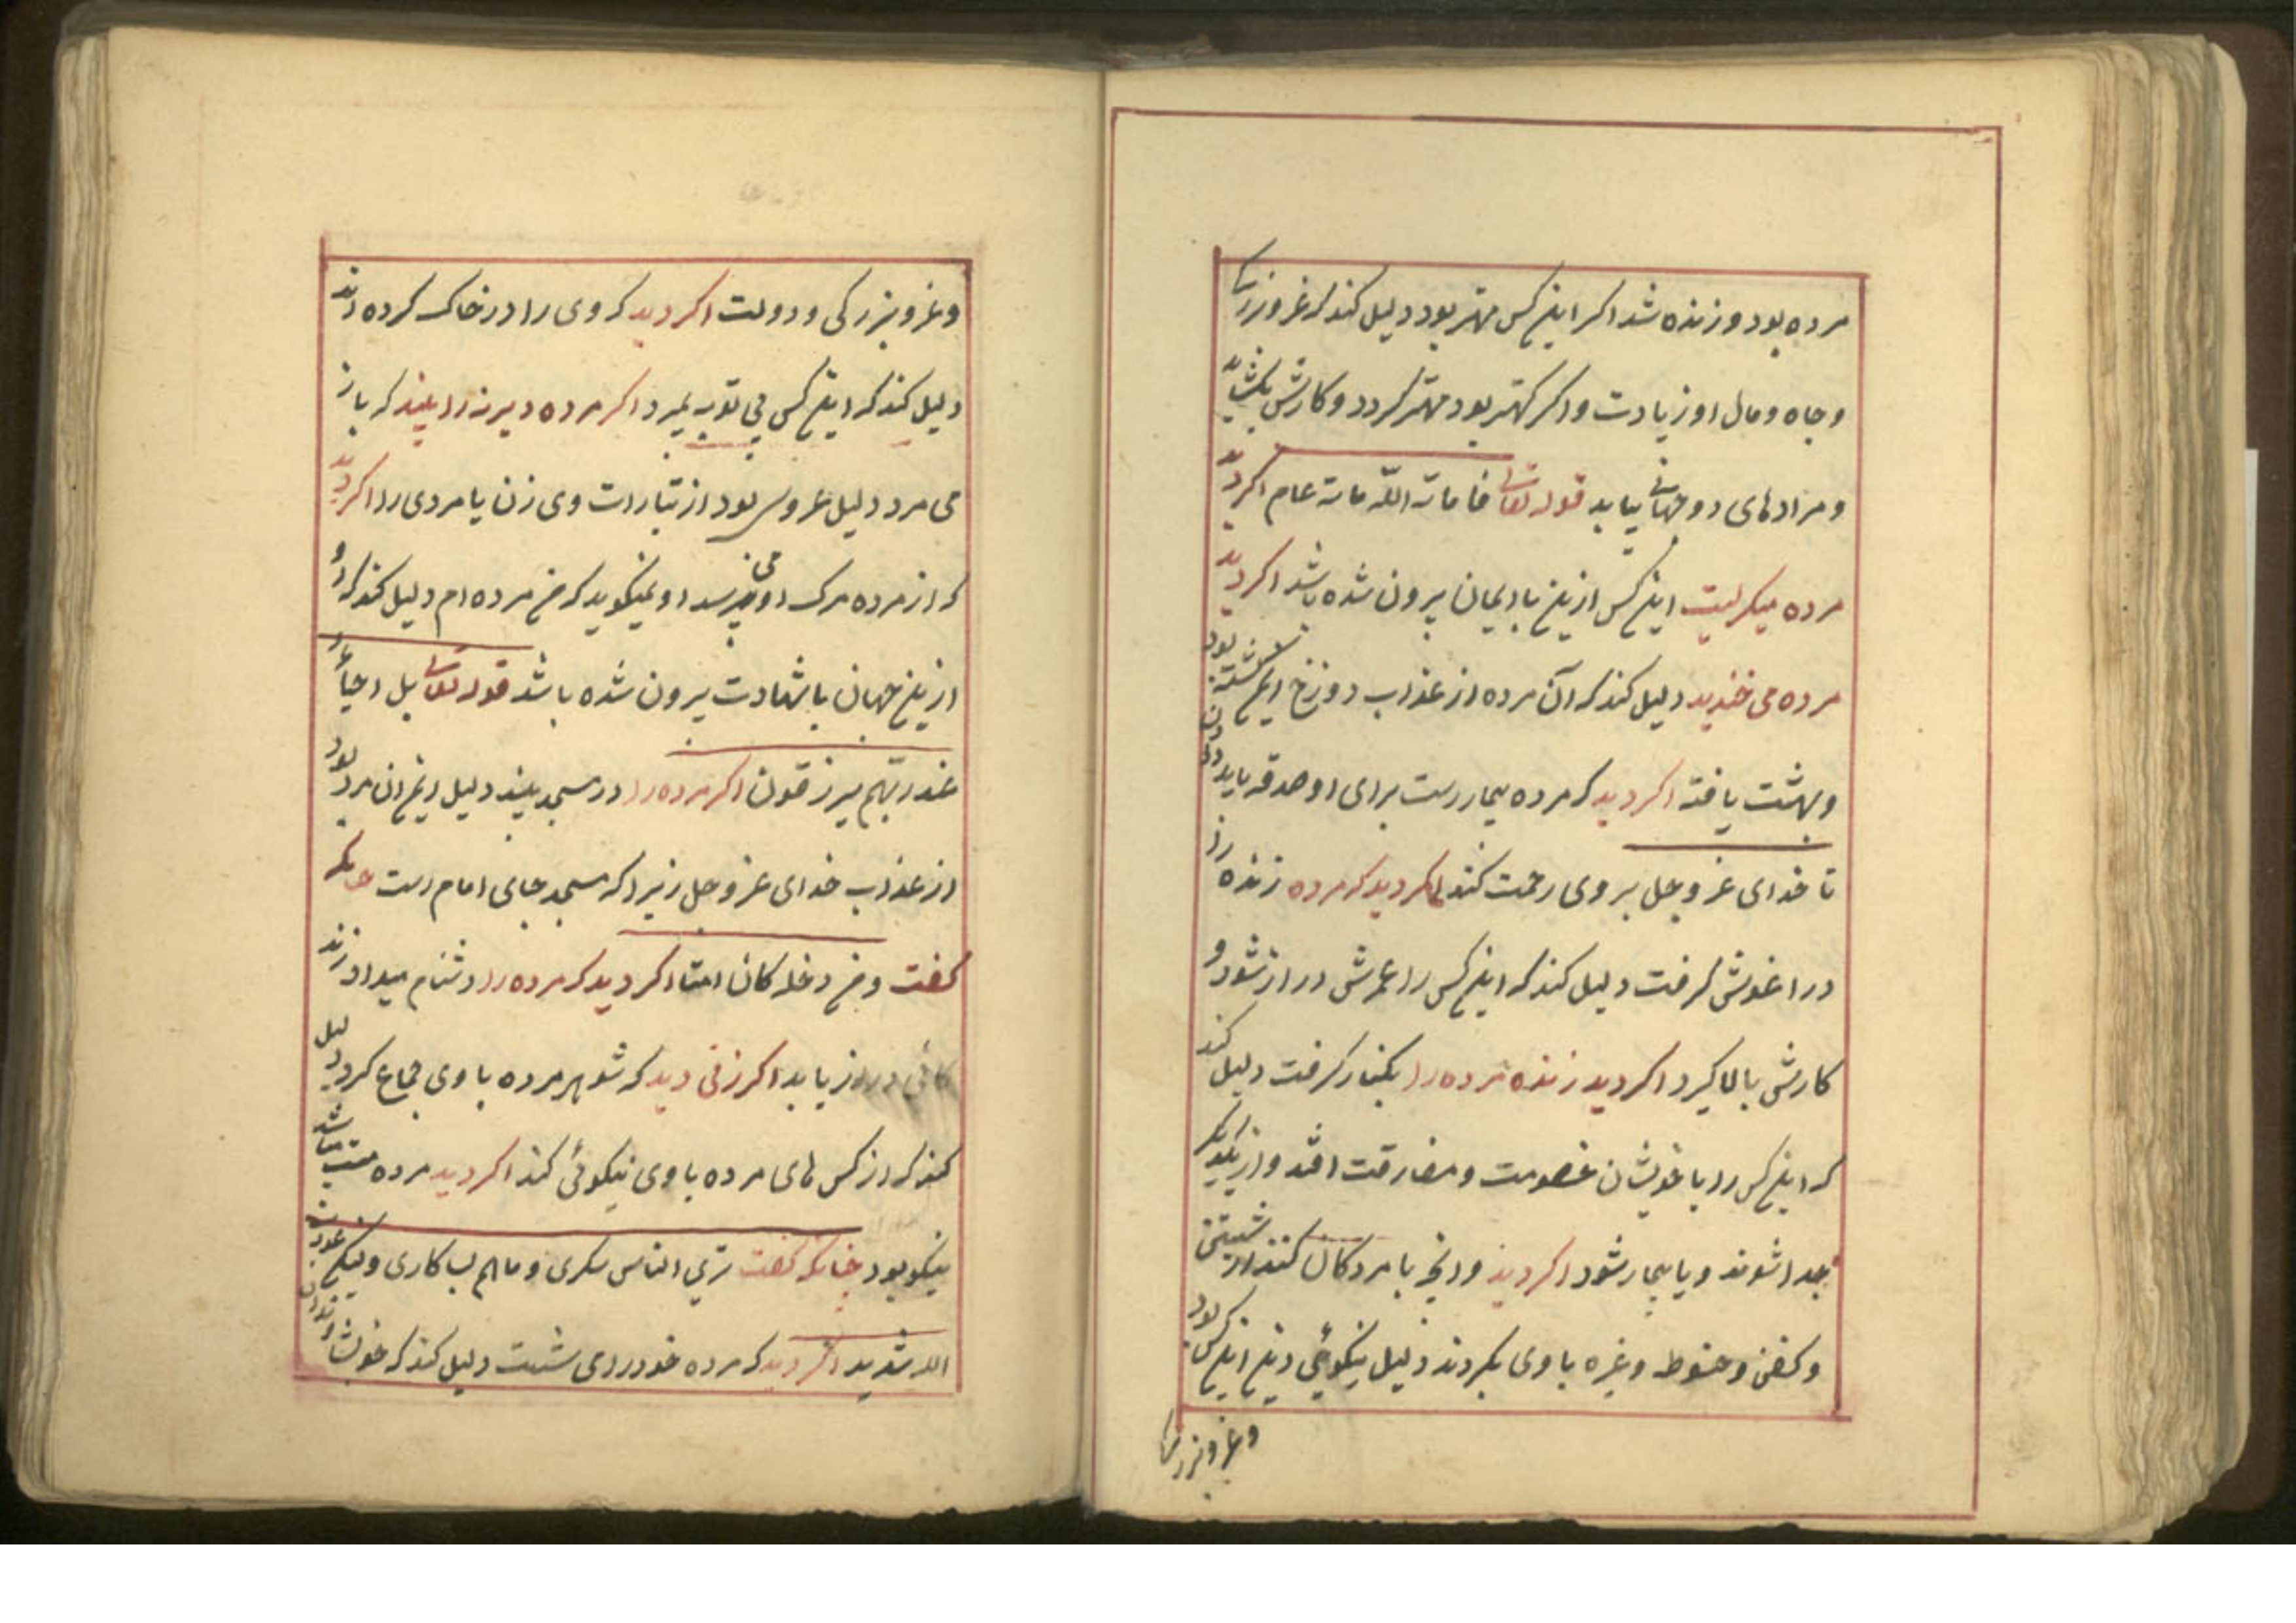 مرده بود و زنده شد اکر اینکس مهتر بود دلیل کند که عز و بزرکی
و جاه و مال او زیادت و اکر کهتر بود مهتر کردد و کارش بکشاید
و مرادهای دو جهانی بیابد قوله تعالی فاماته الله مائة عام اکر دید
مرده میکریست اینکس ازین با ایمان بیرون شده باشد اکر دید
مرده می خندید دلیل کند که آن مرده از عذاب دوزخ ایمن کشته بود
و بهشت یافته اکر دید که مرده بیمارست برای او صدقه باید دادن
تا خدای عز و جل بر وی رحمت کند اکر دید که مرده زنده را
در اغوش کرفت دلیل کند که اینکس را عمرش دراز شود و
کارش بالا کیرد اکر دید زنده مرده را بکنار کرفت دلیل کند
که اینکس را با خویشان خصومت و مفارقت افتد و از یکدیکر
جدا شوند و یا بیمار شود اکر دید و انچه با مردکان کنند از شستن
و کفن و حنوط و غیره با وی بکردند دلیل نیکوئی دین اینکس بود
و عز و بزرکی
و عز و بزرکی و دولت اکر دید که وی را در خاک کرده اند
دلیل کند که اینکس بی توبه بمیرد اکر مرده دیرینه را بیند که باز
می مرد دلیل عروسی بود از تبارات وی زن یا مردی را اکر دید
که از مرده مرک او می پرسد او نمیکوید که من مرده ام دلیل کند که او
ازین جهان با شهادت بیرون شده باشد قوله تعالی بل احیاء
عند ربهم یرزقون اکر مرده را در مسجد بیند دلیل ایمن ان مرد بود
از عذاب خدای عز و جل زیرا که مسجد جای امام است چنانکه
کفت و من دخله کان امنا اکر دید که مرده را دشنام میداد زند
در روز یابد اکر زنی دید که شوهر مرده با وی جماع کرد دلیل
کند که از کس های مرده با وی نیکوئی کند اکر دید مرده مست باشد
نیکو بود چنانکه کفت تری الناس سکری و ما هم بسکاری ولیکن عذاب
الله شدید اکر دید که مرده خود را می شست دلیل کند که خویشاوندان